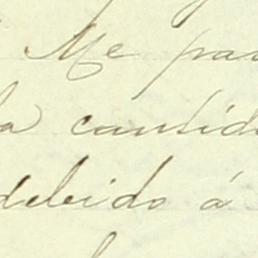 Me par
la cantid
debido á